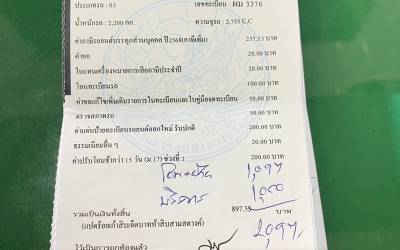 ประเภทรถ : 03 เลขทะเบียน : ผม 3376
น้ำหนักรถ : 2,200 กก. ความจุรถ : 2,155 C.C
ค่าภาษีรถยนต์บรรทุกส่วนบุคคล ปี2568(ภาษีเพิ่ม) 237.53 บาท
ค่าขอ 20.00 บาท
ใบแทนเครื่องหมายการเสียภาษีประจำปี 20.00 บาท
โอนทะเบียนรถ 100.00 บาท
ค่าขอแก้ไขเพิ่มเติมรายการในทะเบียนและใบคู่มือจดทะเบียน 50.00 บาท
ตรวจสภาพรถ 50.00 บาท
ค่าแผ่นป้ายทะเบียนรถออกใหม่ รับปกติ 200.00 บาท
ธรรมเนียมอื่น ๆ 20.00 บาท
ค่าปรับโอนช้ากว่า 15 วัน (ม.17) ช่วงที่ 1 200.00 บาท
1,097
บริการ 1,000
รวมเป็นเงินทั้งสิ้น 897.53 บาท
(แปดร้อยเก้าสิบเจ็ดบาทห้าสิบสามสตางค์) 2,097